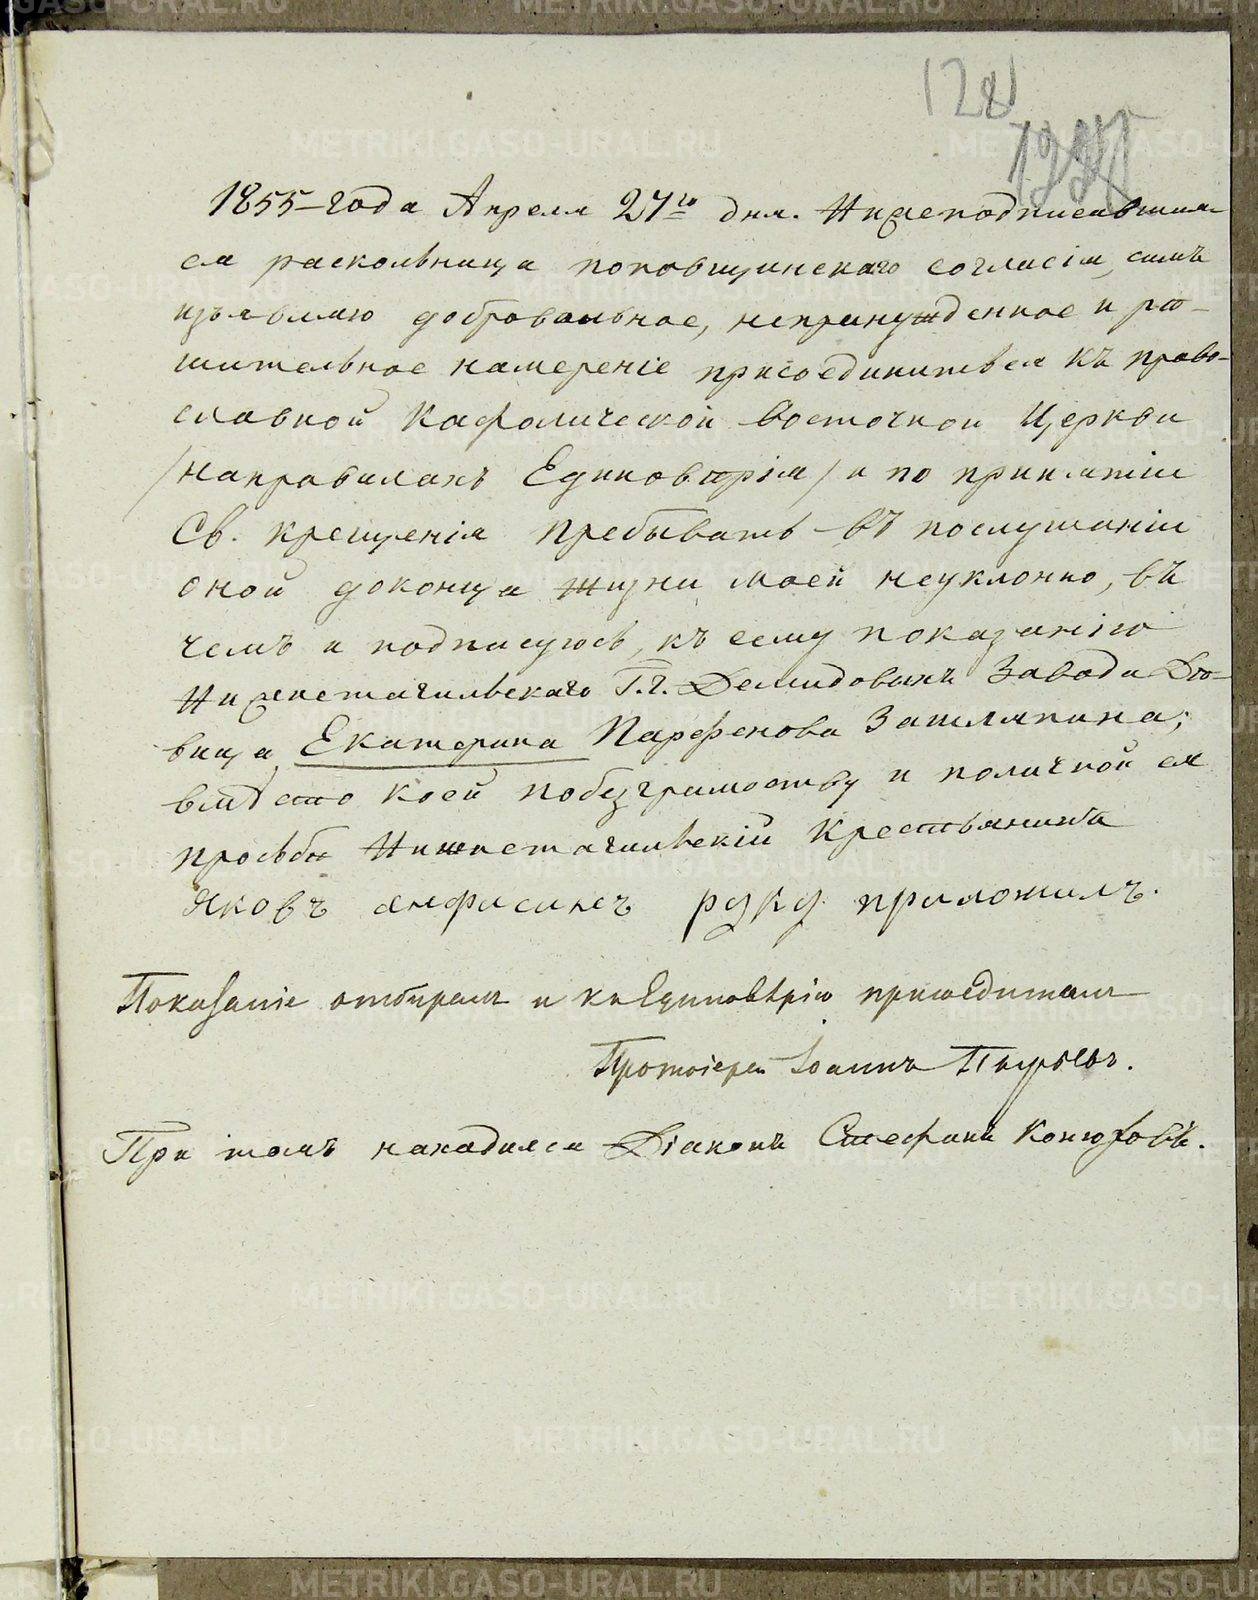 128
1855 – года Апреля 27го дня. Нижеподписавшая-
ся раскольница поповщинскаго согласія, симъ
изъявляю добровольное, непринужденное и рѣ-
шительное намереніе присоединиться къ право-
славной Кафолической Восточной Церкви
/на правилахъ Единовѣрія/ и по принятіи
Св. крещенія пребывать въ послушаніи
оной до конца жизни моей неуклонно, въ
чемъ и подписуюсь, къ сему показанію
Нижнетагильскаго Г.г. Демидовыхъ Завода Дѣ-
вица Екатерина Парфенова Зашляпина;
вмѣсто коей по безграмотству и по личной ея
просьбѣ Нижнетагильскій Крестьянинъ
Яковъ руку приложилъ.
Показаніе отбиралъ и къ Единовѣрію присоединялъ
Протоіерей Іоаннъ Пырьевъ.
При томъ находился Діаконъ Стефанъ Конюховъ.
METRIKI.GASO-URAL.RU